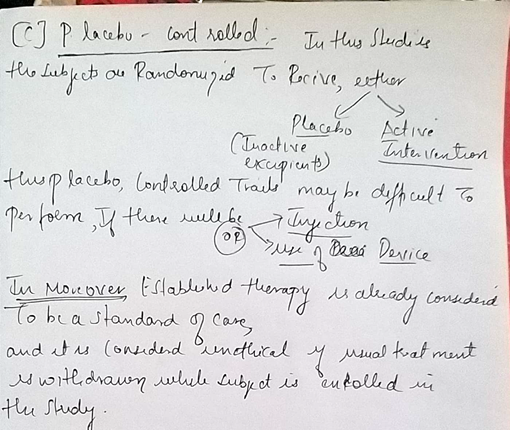 (C) Placebo - controlled :- In this Studies
the subjects are Randomized To Recive, either
Placebo Active
(Inactive Intervention
excipients)
this placebo, Controlled Trails may be difficult To
perform, If there will be Injection
OR use of Device
In Moreover, Established therapy is already considerd
To be a standard of care,
and it is Considerd unethical if usual treatment
is withdrawn while subject is enrolled in
the study.